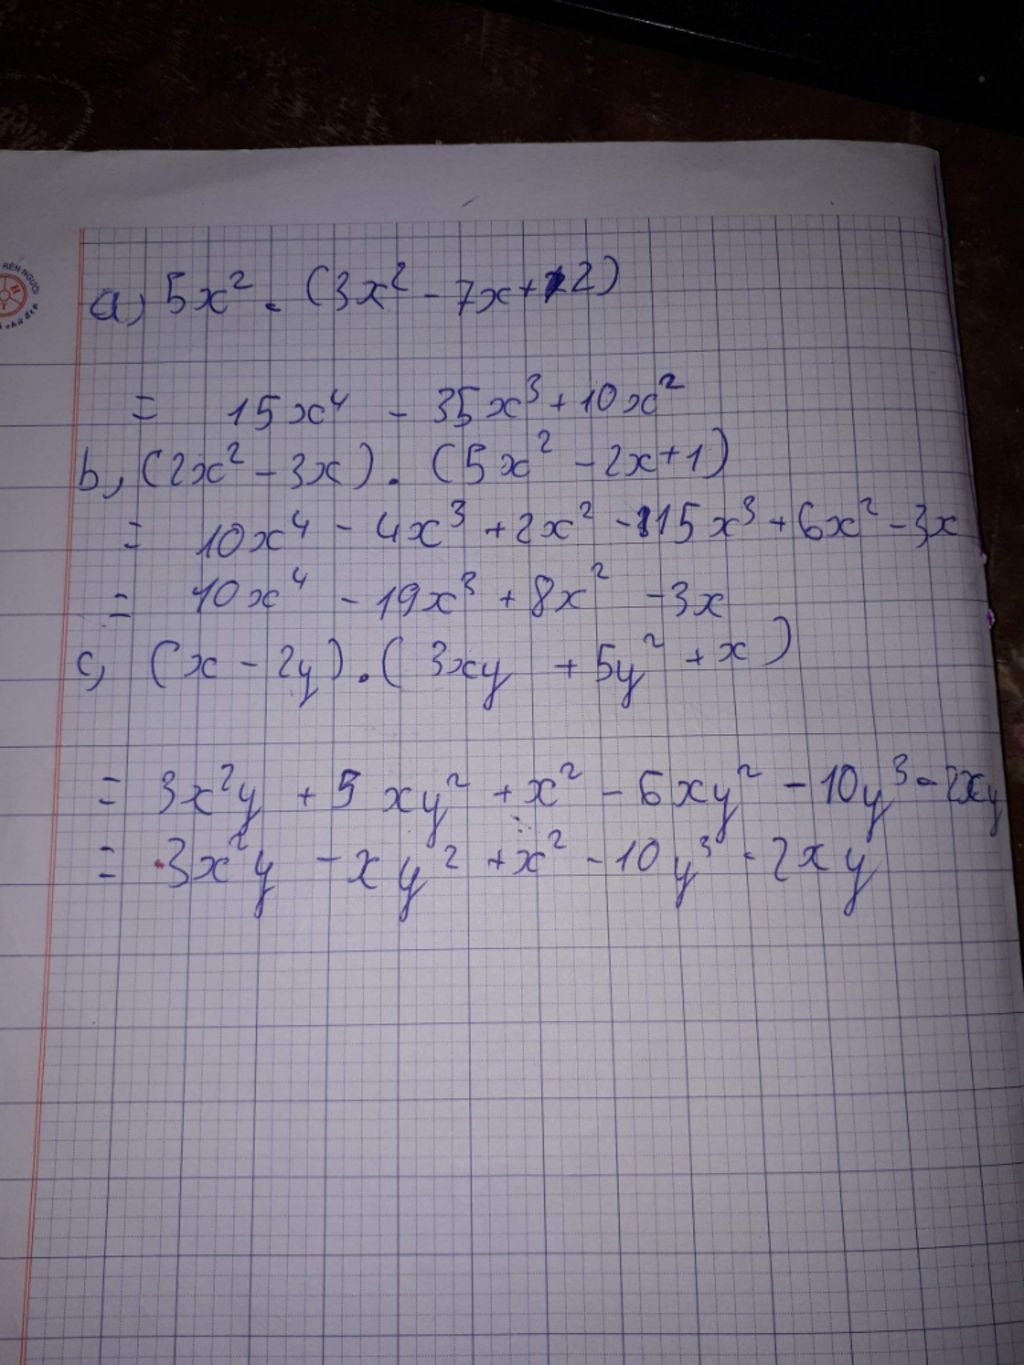 RÈN NGƯỜI
a, 5x² . (3x² - 7x + 2)
= 15x⁴ - 35x³ + 10x²
b, (2x² - 3x) . (5x² - 2x + 1)
= 10x⁴ - 4x³ + 2x² - 15x³ + 6x² - 3x
= 10x⁴ - 19x³ + 8x² - 3x
c, (x - 2y) . (3xy + 5y² + x)
= 3x²y + 5xy² + x² - 6xy² - 10y³ - 2xy
= 3x²y - xy² + x² - 10y³ - 2xy